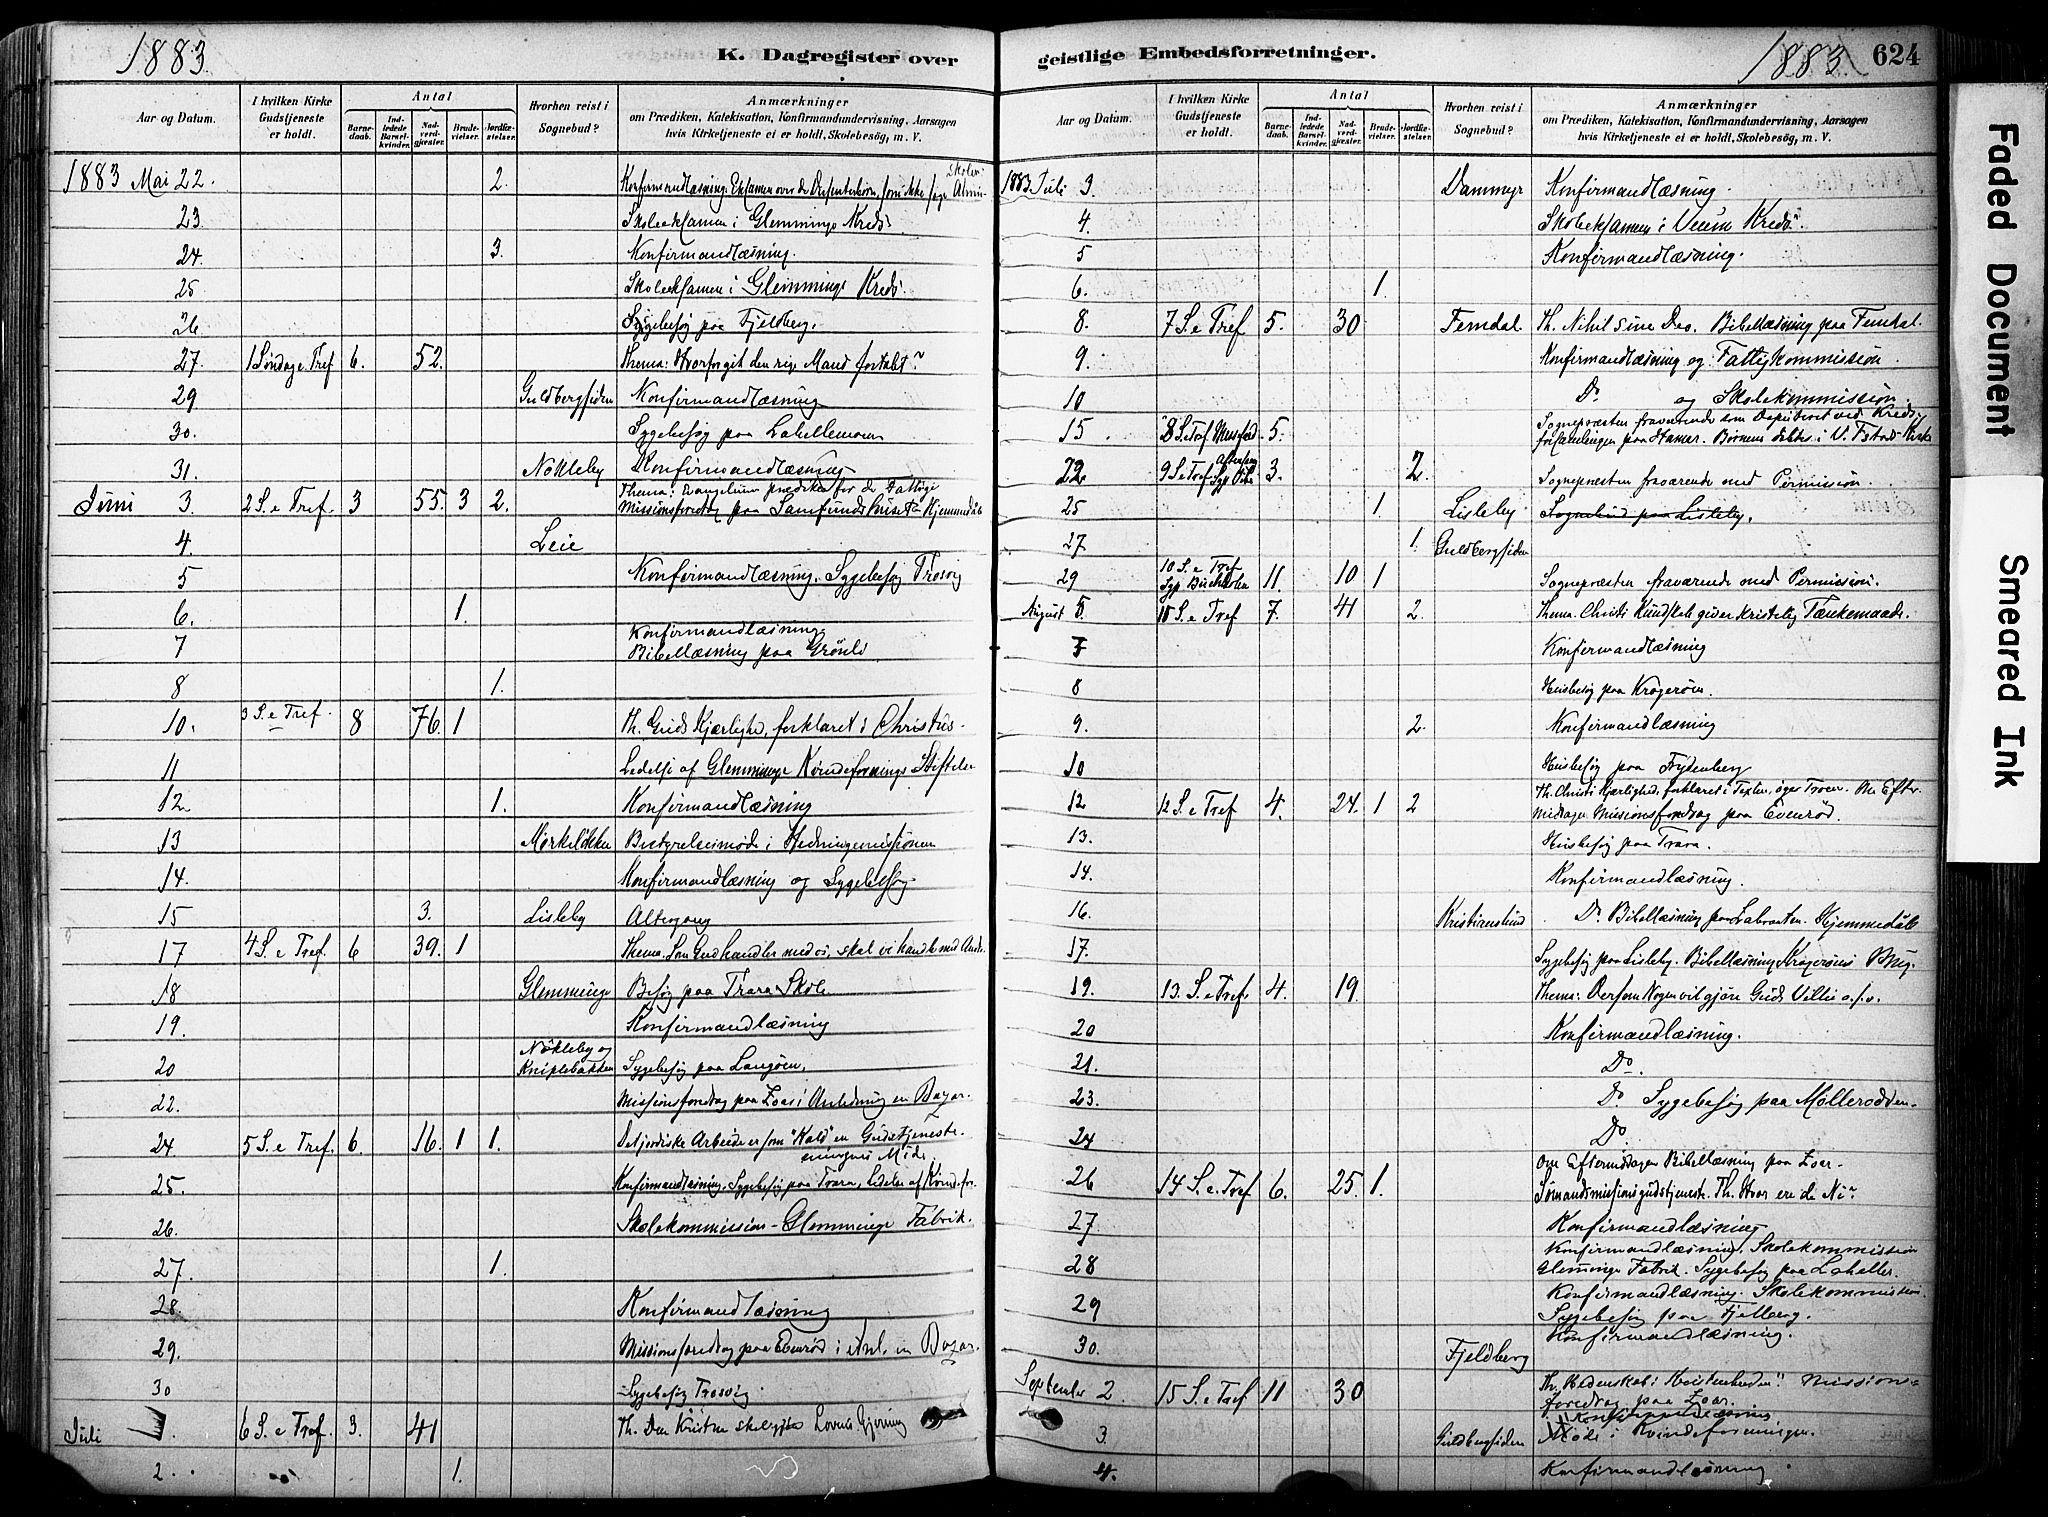 1883.
K. Dagregister over
Aar og Datum.
I hvilken Kirke Gudstjeneste er holdt.
Antal
Barne-daab.
Ind-ledede Barsel-kvinder.
Nad-verd-gjæster.
Brude-vielser.
Jordfæ-stelser.
Hvorhen reist i Sognebud?
Anmærkninger
om Prædiken, Katekisation, Konfirmandundervisning, Aarsagen
hvis Kirketjeneste ei er holdt, Skolebesög, m. V.
1883 Mai 22 2. Konfirmandlæsning. Eksamen over de Skoler
23 Skoleeksamen i Glemminge Kreds.
24. 3. Konfirmandlæsning.
25 Skoleeksamen i Glemminge Kreds.
26 Sygebesøg paa Fjeldberg.
27. 1 Søndag e. Tref 6. 52. Thema: Hvorfor git den rige Mand fortabt?
29 Guldbergsiden Konfirmandlæsning
30. Sygebesøg paa Lahellemoen
31. Nökleby Konfirmandlæsning
Juni 3. 2 S. e Tref. 3 55. 3 2. Thema: Evangelium prædikes for de Fattige
Missionsforedrag paa Samfundshuset
4. Leie
5 Konfirmandlæsning. Sygebesøg Trosvig
6. 1.
7 Konfirmandlæsning.
Bibellæsning paa Grönli.
8 1.
10. 3 S. e Tref. 8 76. 1 Th. Guds Kjærlighed, forklaret i Christus.
11 Ledelse af Glemminge Kvindeforenings Stiftelse
12 1. Konfirmandlæsning
13 Mörkelökken Bestyrelsesmöde i Hedningemissionen
14. Konfirmandlæsning og Sygebesøg
15 3. Lisleby Altergang
17 4 S. e Tref. 6 39. 1 Thema: Som Gud handler med os, skal vi handle med Andre.
18 Glemminge Besøg paa Trara Skole
19. Konfirmandlæsning
20 Nökleby og Kniplebakken Sygebesøg paa Langøen.
22. Missionsforedrag paa Zoar i Anledning en Bazar.
24 5 S. e Tref. 6. 16. 1 1. Det jordiske Arbeide er som "Kald" en Gudstjeneste.
25. Konfirmandlæsning, Sygebesøg paa Trara, Ledelse af Kvindefor-
eningens Möde.
26. Skolekommission - Glemminge Fabrik.
27. 1.
28. Konfirmandlæsning
29. Missionsforedrag paa Evenrød i Anl. en Bazar.
30 Sygebesøg Trosvig.
Juli 1. 6 S. e Tref. 3. 41 Th. Den Kristne Lovens Gjerning
2. 1.
geistlige Embedsforretninger.
1883. 624
Aar og Datum.
I hvilken Kirke Gudstjeneste er holdt.
Antal
Barne-daab.
Ind-ledede Barsel-kvinder.
Nad-verd-gjæster.
Brude-vielser.
Jordfæ-stelser.
Hvorhen reist i Sognebud?
Anmærkninger
om Prædiken, Katekisation, Konfirmandundervisning, Aarsagen
hvis Kirketjeneste ei er holdt, Skolebesög, m. V.
1883 Juli 3 Dammyr Konfirmandlæsning.
4. Skoleeksamen i Veum Kreds.
5 Konfirmandlæsning.
6. 1
8. 7 S. e Tref 5. 30 Femdal. Th. Nihil sine Deo. Bibellæsning paa Femdal.
9. Konfirmandlæsning og Fattigkommission.
10 Do og Skolekommission.
15. 8 S. e Tref 5. Sognepresten fraværende som Deputeret ved Kreds-
forsamlingen paa Hamar. Börnene döbte i V. Fstad Kirke
22 9 S. e Tref 3. 2. Sognepresten fraværende med Permission.
25 1 Lisleby Sognebud paa Lisleby.
27 1. Guldbergsiden
29 10 S. e Tref 11. 10 1 Sognepræsten fraværende med Permission.
August 5. 11 S. e Tref 7. 41 2. Thema: Christi Kundskab giver kristelig Tænkemaade.
7 Konfirmandlæsning
8 Husbesøg paa Kragerøen.
9. 2. Konfirmandlæsning
10 Husbesøg paa Frydenberg
12 12 S. e Tref 4. 24. 1 2 Th. Christi Kjærlighed, forklaret i Texten, øger Troen. Om Efter-
middagen Missionsforedrag paa Evenrød.
13. Husbesøg paa Trara.
14. Konfirmandlæsning.
16. Kristianslund Do Bibellæsning paa Labraaten. Hjemmedöb
17. Sygebesøg paa Lisleby. Bibellæsning Kragerøens Brug.
19. 13. S. e Tref. 4. 19. Thema: Dersom Nogen vil gjøre Guds Villie o. s. v.
20 Konfirmandlæsning.
21. Do.
23. Do. Sygebesøg paa Mölleroden.
24 Do.
Om Eftermiddagen Bibellæsning paa Zoar.
26 14 S. e. Tref 6. 25. 1. Sömandsmissionsgudstjeneste. Th. Hvor ere de Ni?
27 Konfirmandlæsning
28 Konfirmandlæsning, Skolekommission
Glemminge Fabrik. Sygebesøg paa Lahellen.
29 Konfirmandlæsning. Skolekommission.
Sygebesøg paa Fjelberg.
30. Fjeldberg Konfirmandlæsning.
September 2. 15 S. e Tref 11 30 Th. Hedenskab i Kristenheden". Missions-
foredrag paa Zoar.
3. Guldbergsiden Konfirmandlæsning
Möde i Kvindeforeningen.
4. Konfirmandlæsning.
Faded Document
Smeared Ink